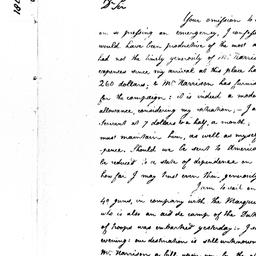 Dr Sir
Your omission to
on so pressing an emergency, I
would have been productive of the most
had not the timely generosity of Mr Harris
expences since my arrival at this place ha
260 dollars; & Mr Harrison has furni
for the campaign: it is indeed a mode
allowance, considering my situation,
servant at 7 dollars & a half, a month,
must maintain him, as well as myse
pence. Should we be sent to Americ
be reduced to a state of dependance on
how far I may trust even their generosity
I am to sail on
gun, in company with the Marque
who is also an aid de camp of the
of troops was embarked yesterday
evening: our destination is still unknown
Mr Harrison a bill upon